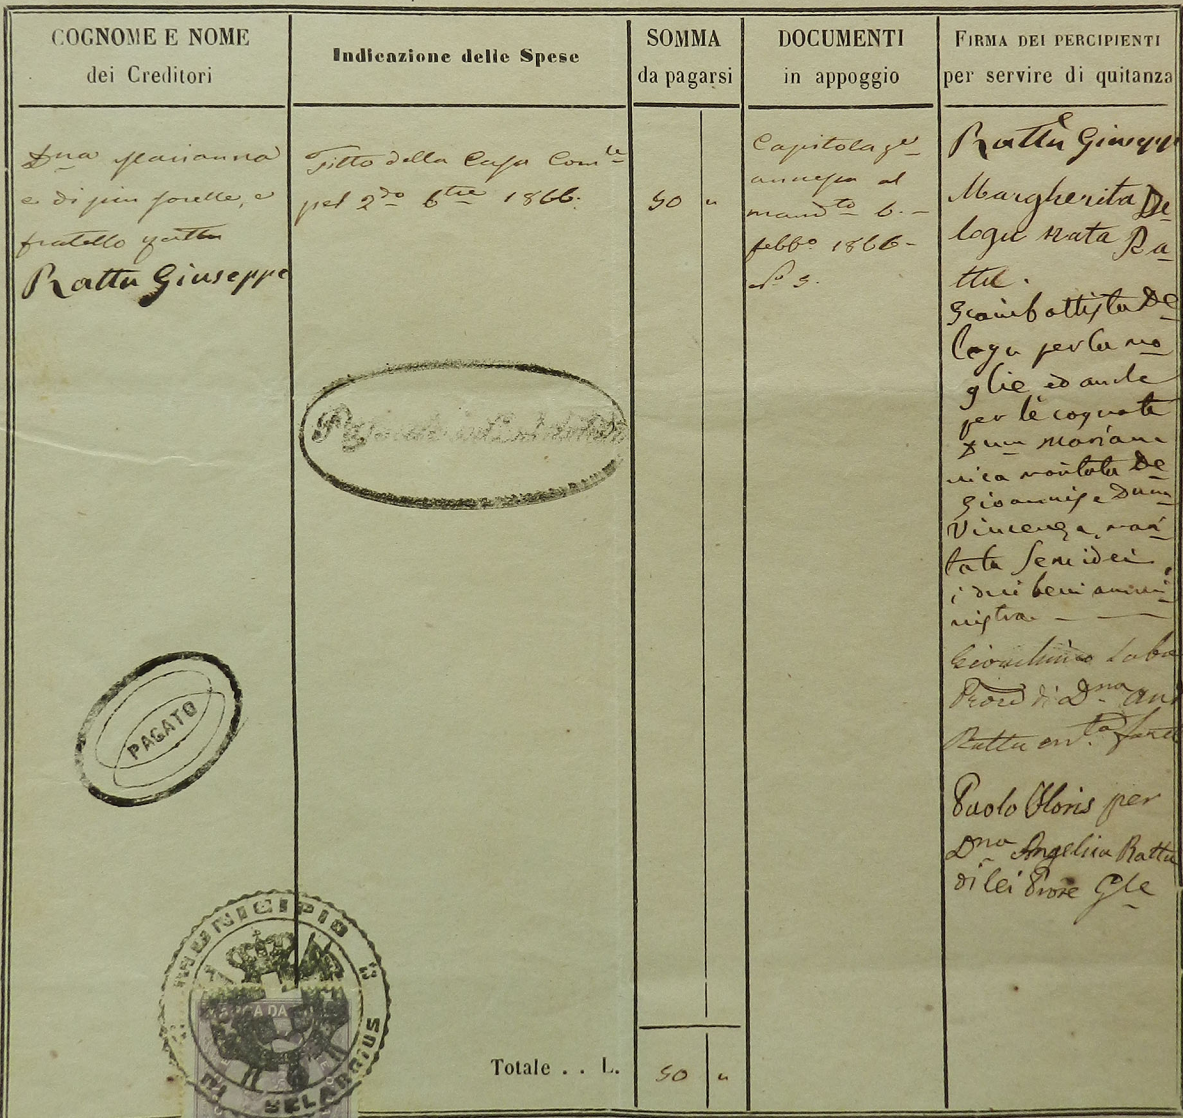 COGNOME E NOME
dei Creditori
Indicazione delle Spese
SOMMA
da pagarsi
DOCUMENTI
in appoggio
FIRMA DEI PERCIPIENTI
per servire di quitanza
Dna Marianna
e di più sorelle, e
fratello Rattu
Rattu Giuseppe
Fitto della Casa Comle
pel 2do 6tre 1866.
50 "
Capitolaze
annessa al
mandto 6.
febbo 1866
No 3.
Rattu Giuseppe
Margherita De
logu nata Ra
ttu.
Giambattista De
logu per la mo
glie ed anche
per le cognate
Dna Marian
nica maritata De
Gioannis e Dna
Vincenza, mari
tata Semidei,
i cui beni ammi
nistra
Gioachino
Prore di Dna
Rattu
Paolo Floris per
Dna Angelica Rattu
di lei Prore Gle
PAGATO
MUNICIPIO
DI SELARGIUS
MARCA DA
Totale . . L.
50 "